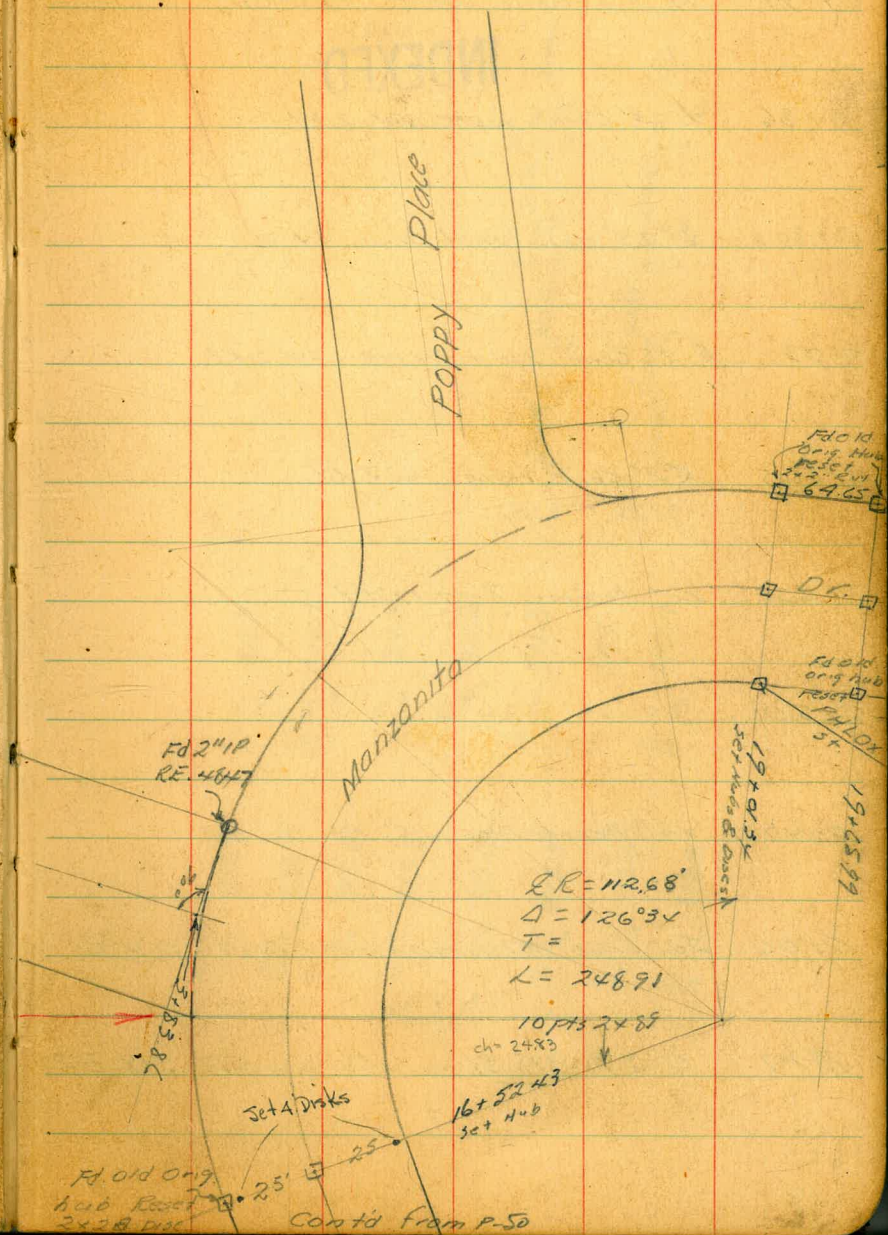 Poppy Place
Fd old
Orig. Hub
reset
64.65
Dr.
Fd old
orig hub
reset
PHLOX
St
Manzanita
Fd 2" IP
RE. 4847
19+01.34
19+65.99
R = 112.68'
Δ = 126°34
T =
L = 248.91
10 pts 24.89
ch = 24.83
16+52.43
Set Hub
Set 4 Disks
25
25'
Fd. old Orig
hub Reset
Cont'd from P-50